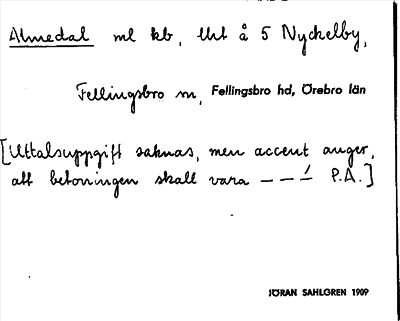 Almedal ml kb, Uht å 5 Nyckelby,
Fellingsbro sn, Fellingsbro hd, Örebro län
[Uttalsuppgift saknas, men accent anger,
att betoningen skall vara – – –́ P.A.]
JÖRAN SAHLGREN 1909